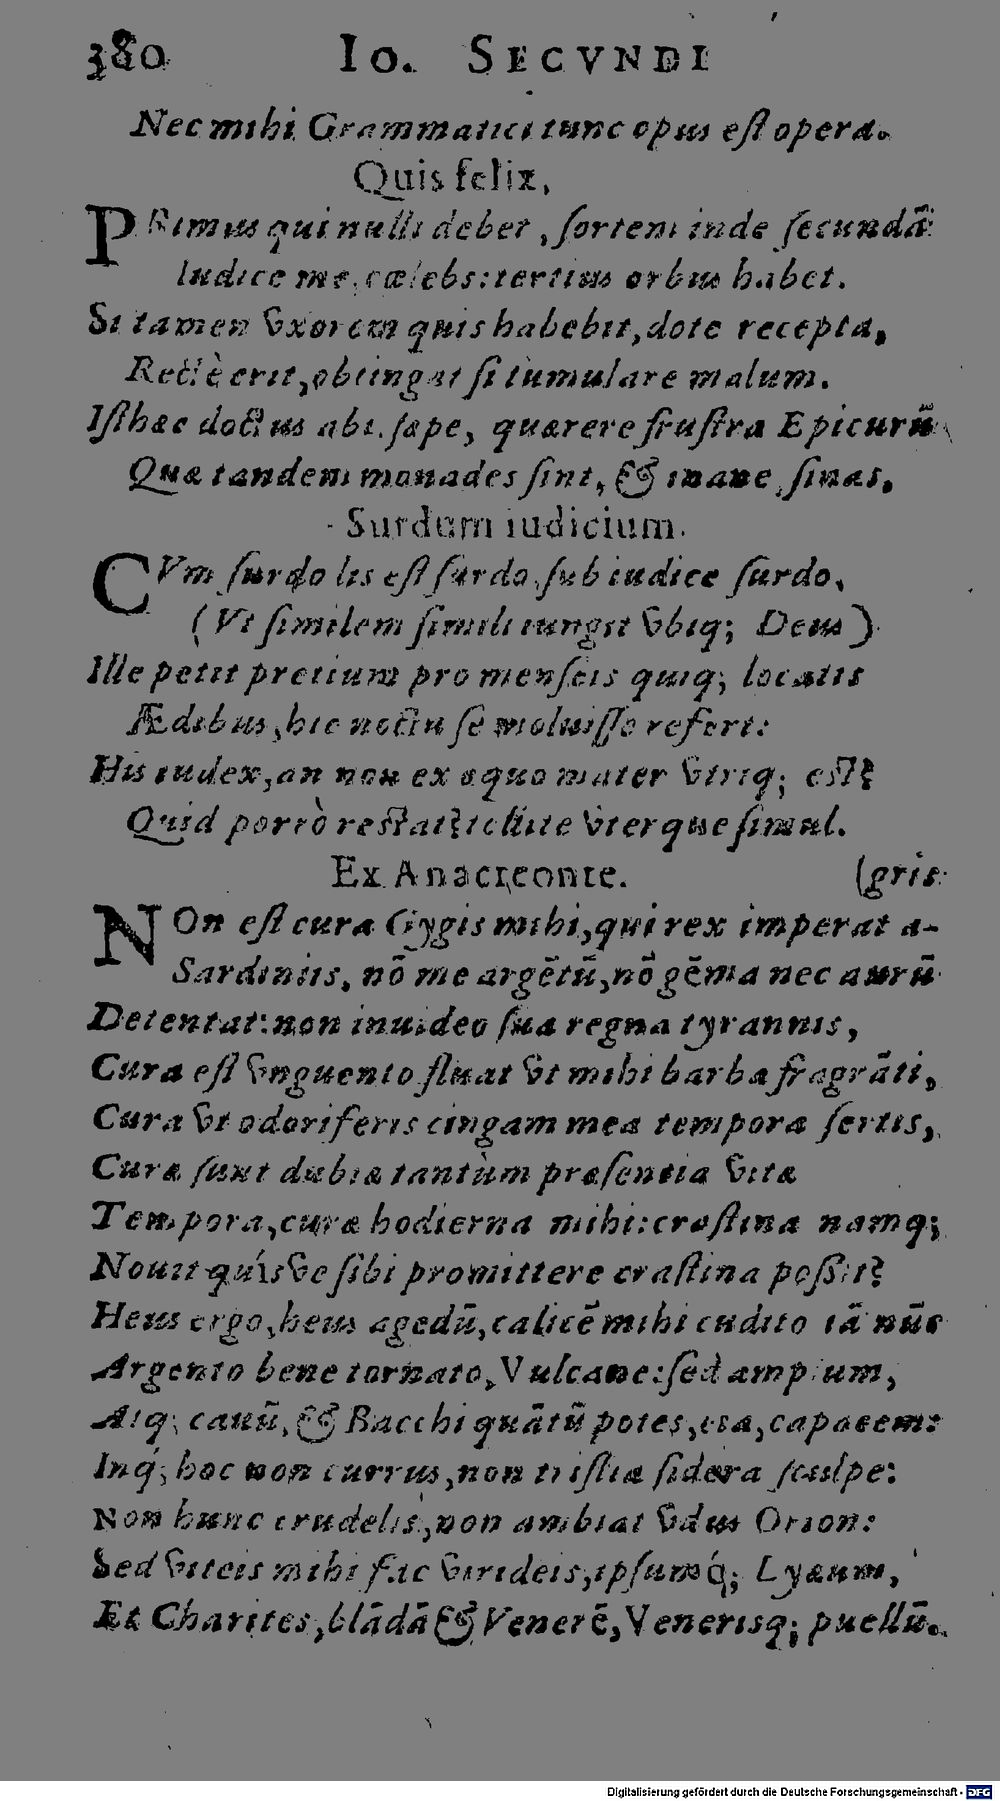 380 Io. Secvndi
Nec mihi Grammatici tunc opus est opera.
Quis felix,
PRimus qui nulli debet, sortem inde secundā:
Iudice me, cælebs: tertius orbus habet.
Si tamen vxorem quis habebit, dote recepta,
Rectè erit, obtingat si tumulare malum.
Isthæc doctius abi. sæpe, quærere frustra Epicurū
Quæ tandem monades sint, & inane, sinas,
Surdum iudicium.
CVm surdo lis est surdo, sub iudice surdo,
(Vt similem simili iungit vbiq; Deus)
Ille petit pretium pro menseis quiq; locatis
Ædibus, hic noctu se moluisse refert:
His iudex, an non ex æquo mater vtriq; est?
Quid porrò restat? tollite vterque simul.
Ex Anacreonte. (gris:
NOn est cura Gygis mihi, qui rex imperat a-
Sardiniis, nō me argētū, nō gēma nec aurū
Detentat: non inuideo sua regna tyrannis,
Cura est vnguento fluat vt mihi barba fragrāti,
Cura vt odoriferis cingam mea tempora sertis,
Curæ sunt dubiæ tantùm præsentia vitæ
Tempora, curæ hodierna mihi: crastina namq;
Nouit quísve sibi promittere crastina possit?
Heus ergo, heus agedū, calicē mihi cudito iā nūc
Argento bene tornato, Vulcane: sed amplum,
Atq; cauū, & Bacchi quātū potes, era, capacem:
Inq́; hoc non currus, non tristia sidera sculpe:
Non hunc crudelis, non ambiat vdus Orion:
Sed viteis mihi fac virideis, ipsumq́; Lyæum,
Et Charites, blādā & Venerē, Venerisq; puellū.
Digitalisierung gefördert durch die Deutsche Forschungsgemeinschaft - DFG